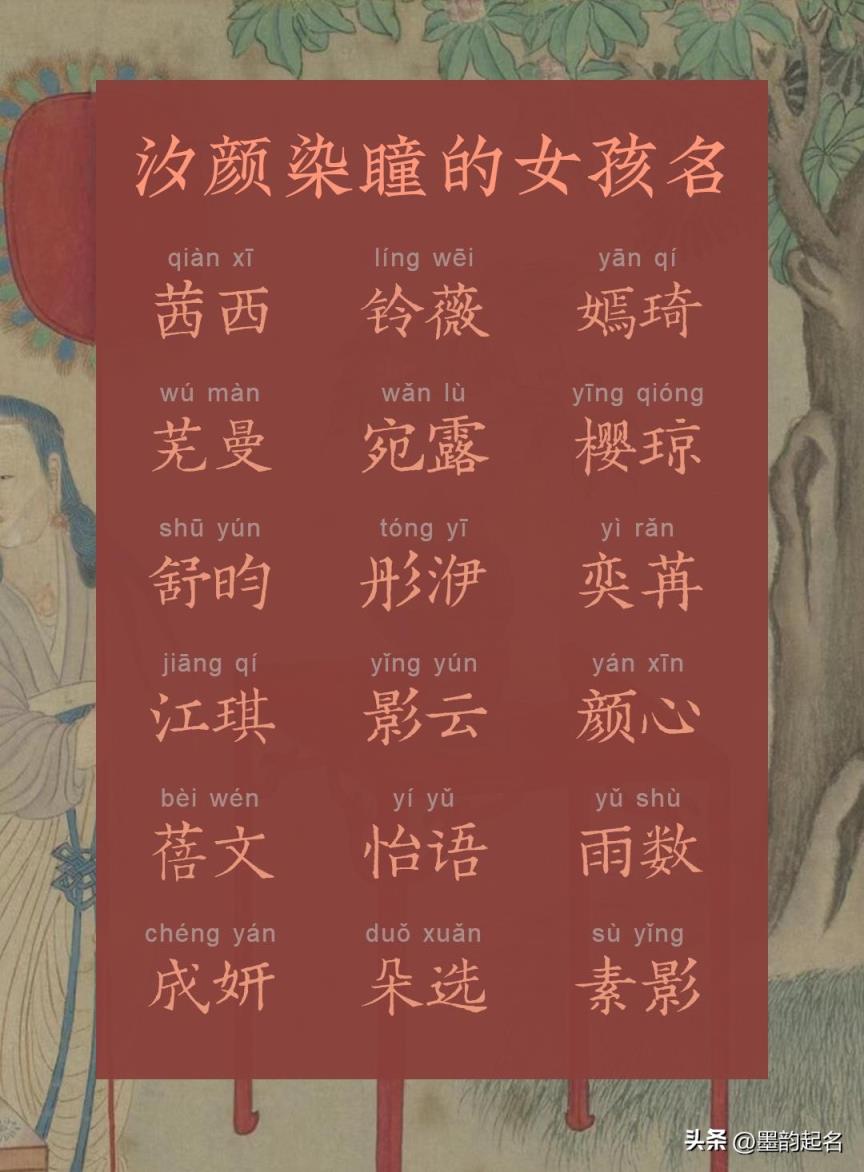 汐颜染瞳的女孩名
qiàn xī líng wēi yān qí
茜西 铃薇 嫣琦
wú màn wǎn lù yīng qióng
芜曼 宛露 樱琼
shū yún tóng yī yì rǎn
舒昀 彤洢 奕苒
jiāng qí yǐng yún yán xīn
江琪 影云 颜心
bèi wén yí yǔ yǔ shù
蓓文 怡语 雨数
chéng yán duǒ xuǎn sù yǐng
成妍 朵选 素影
头条 @墨韵起名